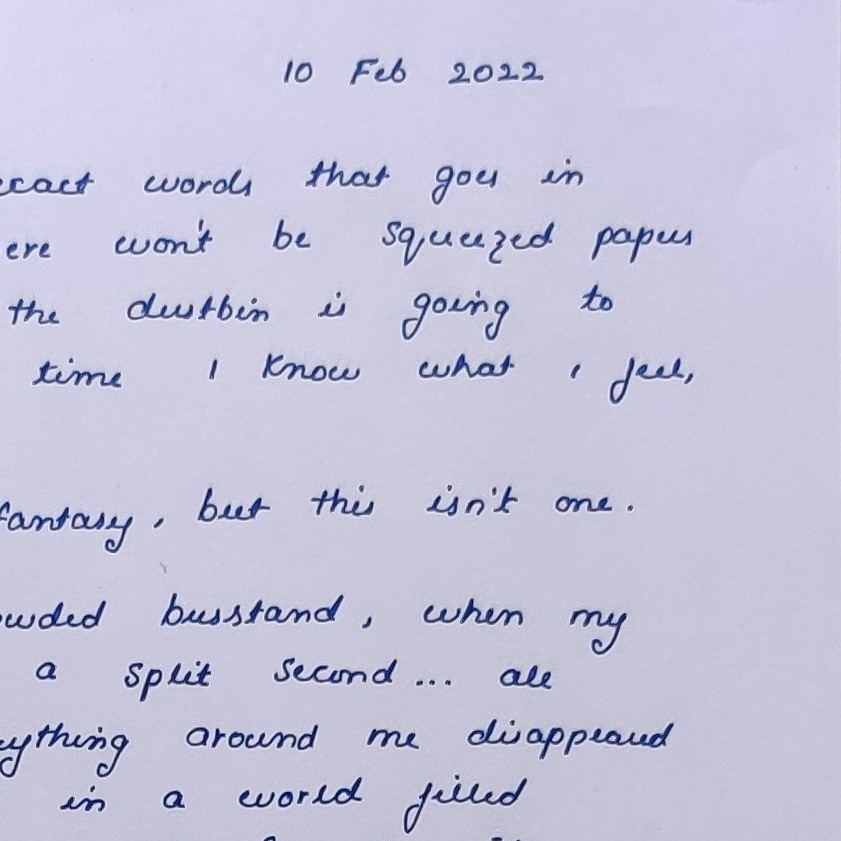 10 Feb 2022
exact words that goes in
ere won't be squeezed papers
the dustbin is going to
time I know what i feel,
fantasy, but this isn't one.
owded busstand, when my
a split second... all
ything around me disappeared
in a world filled